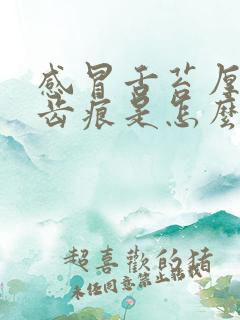 感冒舌苔厚
齿痕是怎麽
超喜歡的豬
未任同意禁止転載